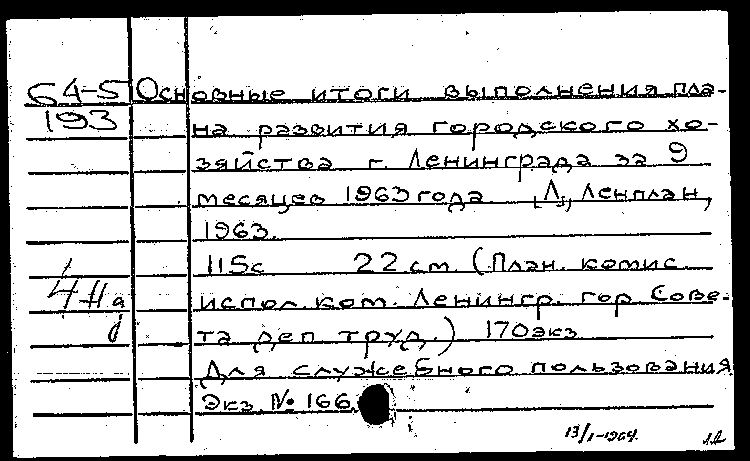 64-5 Основные итоги выполнения пла-
193 на развития городского хо-
зяйства г. Ленинграда за 9
месяцев 1963 года [Л.], Ленплан,
1963.
115с 22 см. (План. комис.
4На испол. ком. Ленингр. гор. Сове-
та деп труд.) 170экз
Для служебного пользования
Экз. № 166.
13/I-1964.